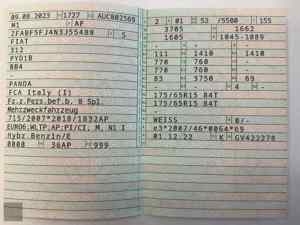 09.08.2023 1727 AUC802569
M1 AF
ZFABF5FJ4N3J55480 5
FIAT
312
PYD1B
BB4
-
PANDA
FCA Italy (I)
Fz.z.Pers.bef.b. 8 Spl.
Mehrzweckfahrzeug
715/2007*2018/1832AP
EURO6;WLTP;AP;PI/CI, M, N1 I
Hybr.Benzin/E
0008 36AP 999
2 01 52 /5500 155
3705 1662
1605 1045-1089
- - -
111 1410 1410
770 760 -
770 760 -
83 3750 69
- 4 -
175/65R15 84T
175/65R15 84T
WEISS 0/-
e3*2007/46*0064*69
01.12.22 K GV422270